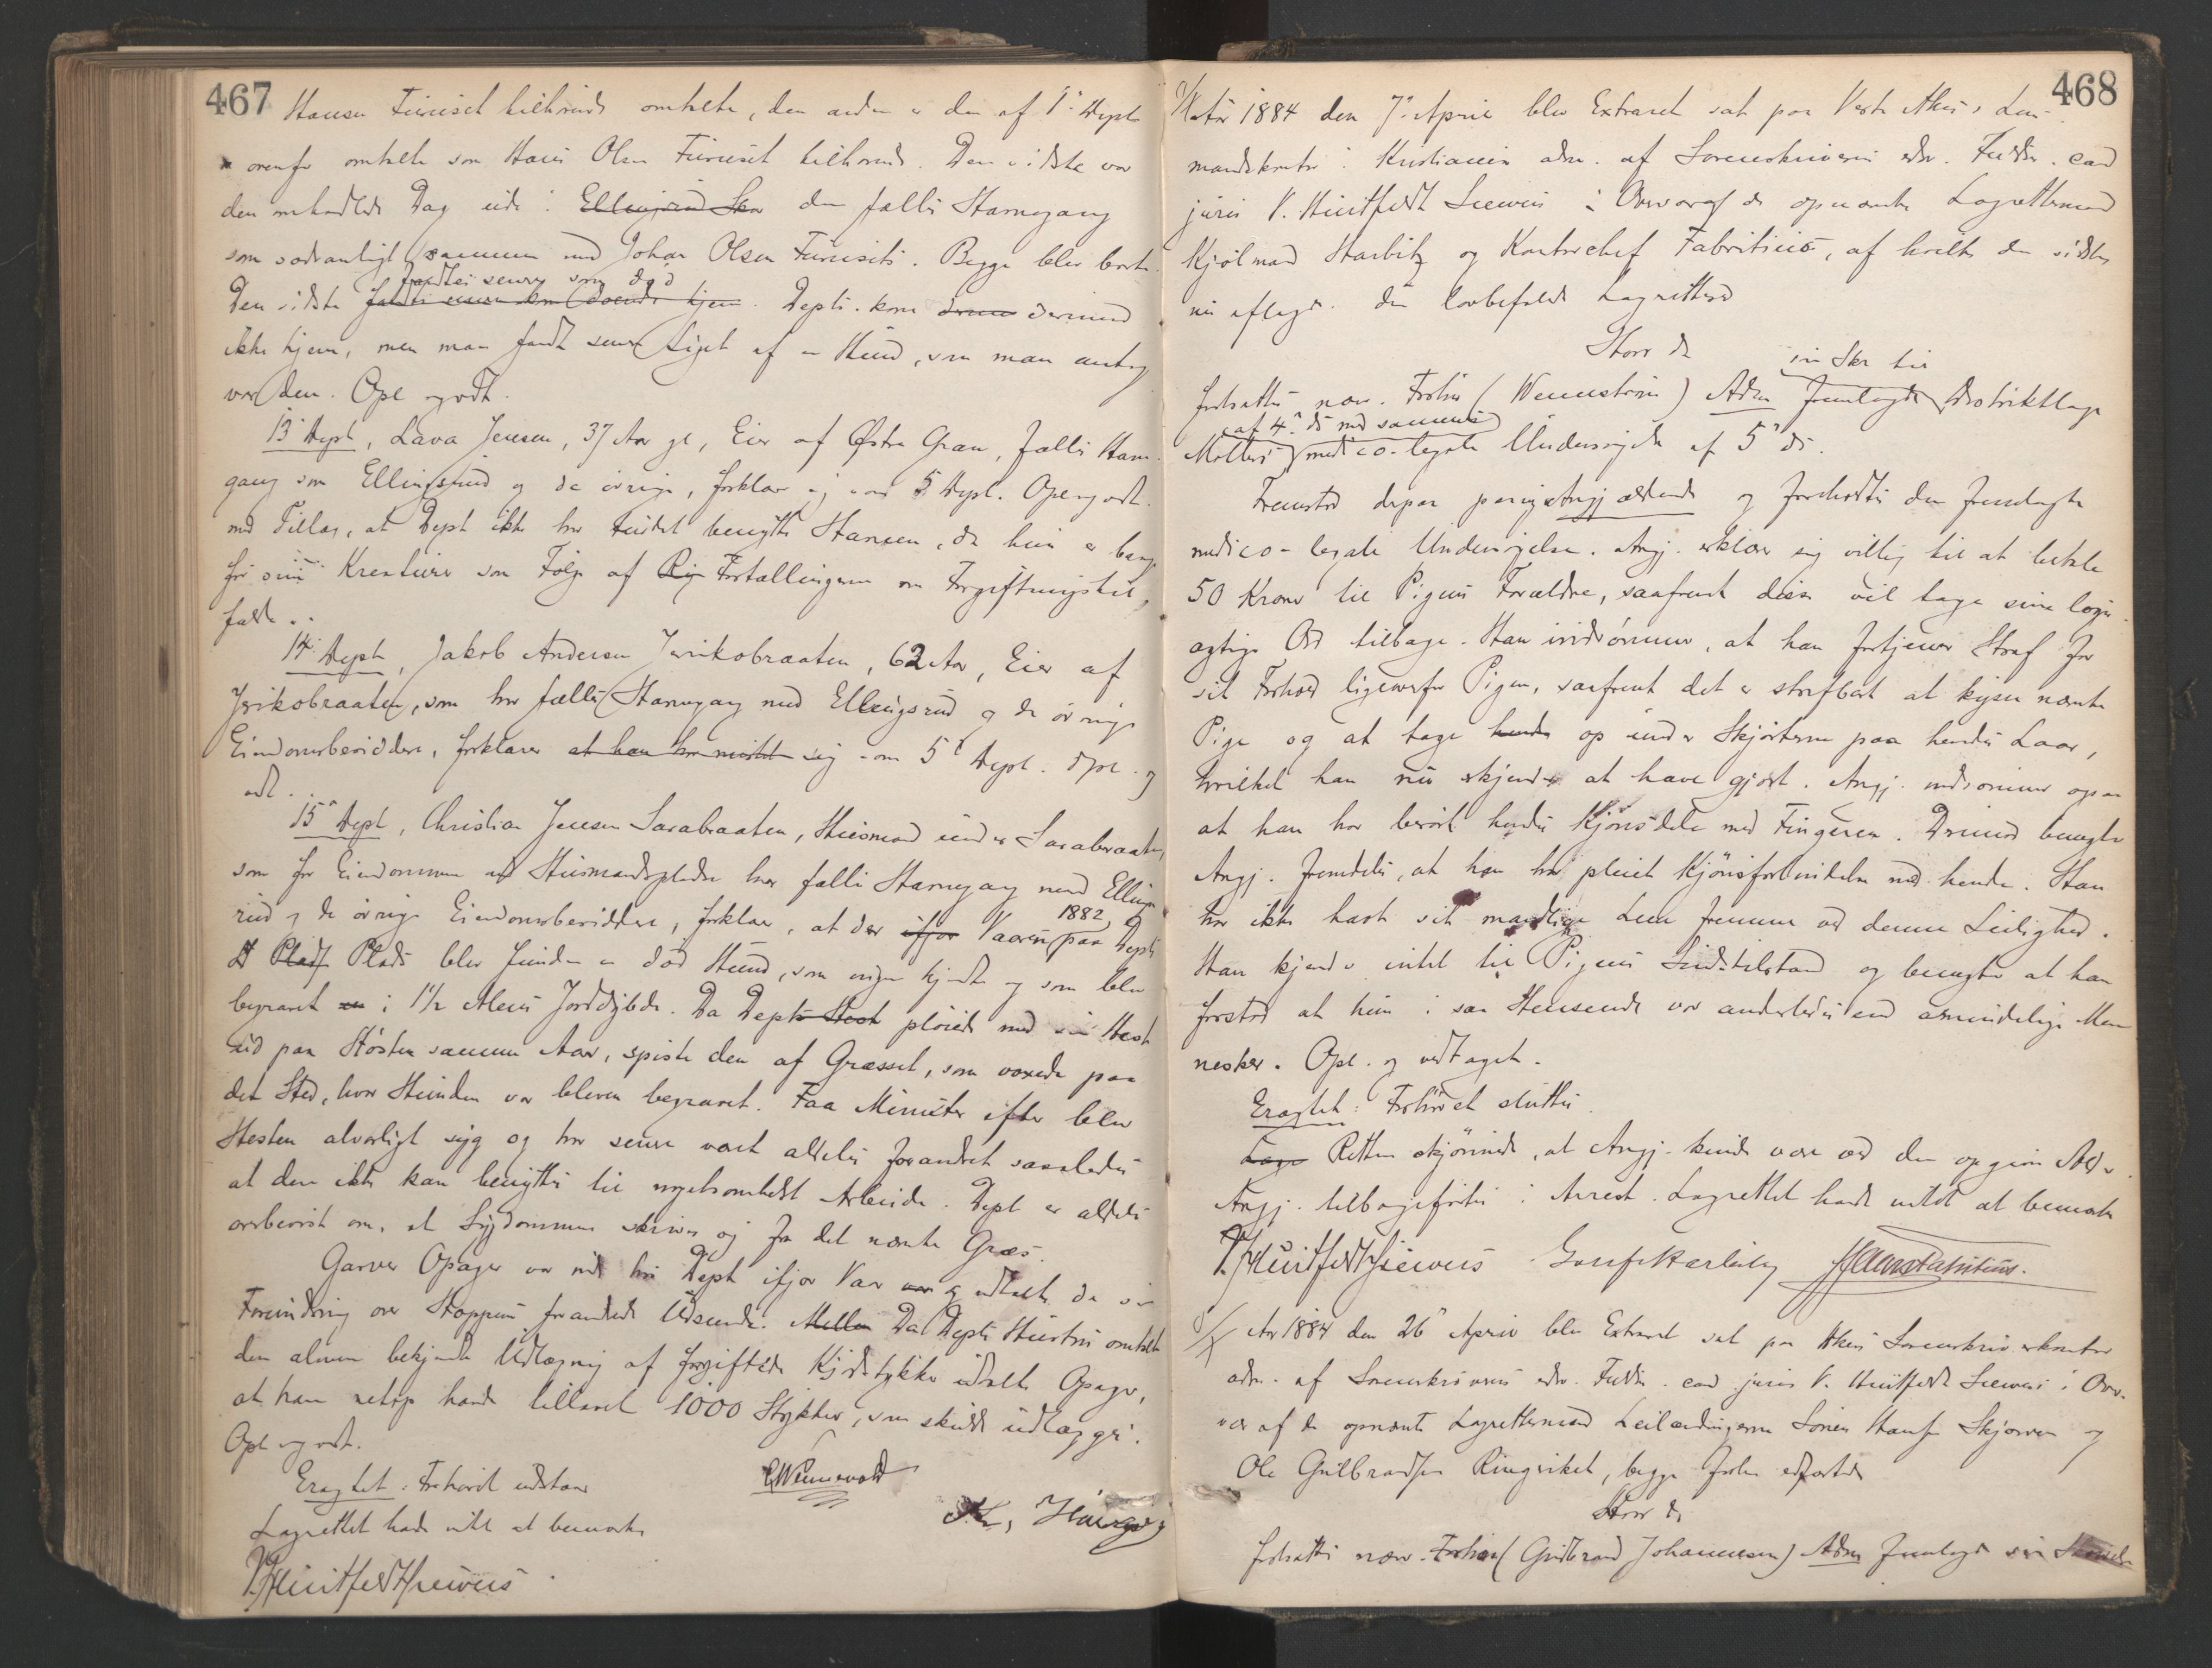 467
Hansen Furuset tilhørende omtalte, den anden er den af 1ste Dept
ovenfor omtalte som Hans Olsen Furuset tilhørende. Den sidste var
den omhandlede Dag ude i Ellingsrud Skov den fælles Havnegang
som sædvanligt sammen med Johan Olsen Furusets. Begge blev borte.
fandtes senere som død
Den sidste fandtes senere som døende hjem. Depts. kom denne derimod
ikke hjem, men man fandt senere Liget af en Hund, som man antog
var den. Opl. og vedt.
13de Dept, Lava Jensen, 37 Aar gl, Eier af Østre Gran, fælles Havne-
gang som Ellingsrud og de øvrige, forklarer sig som 5 Dept. Opl. og vedt.
med Tillæg, at Dept ikke har turdet benytte Havnen, da hun er bange
for sine Kreaturer som Følge af Ryg Fortællingerne om Forgiftningstil-
fælde.
14de Dept, Jakob Andersen Jerikobraaten, 62 Aar, Eier af
Jerikobraaten, som har fælles Havnegang med Ellingsrud og de øvrige
Eiendomsbesiddere, forklarer at han har mistet sig som 5te Dept. Opl. og
vedt.
15de Dept, Christian Jensen Sarabraaten, Husmand under Sarabraaten,
som for Eiendommen og Husmandspladse har fælles Havnegang med Ellings-
rud og de øvrige Eiendomsbesiddere, forklarer, at der ifjor Vaaren 1882 paa Depts
Plads Plads blev funden en død Hund, som ingen kjendte og som blev
begravet i 1½ Alens Jorddybde. Da Depts Hest pløiede med sin Hest
ved paa Høsten samme Aar, spiste den af Græsset, som voxede paa
det Sted, hvor Hunden var bleven begravet. Faa Minuter efter blev
Hesten alvorligt syg og har senere været aldeles forandret saaledes
at den ikke kan benyttes til nogetsomhelst Arbeide. Dept er aldeles
overbevist om, at Sygdommen skriver sig fra det nævnte Græs.
Garver Opager var nede hos Dept ifjor Vaar og udtalte da sin
Forundring over Hoppens forandrede Udseende. Mellem Da Depts Hustru omtalte
den alment bekjendte Udlægning af forgiftede Kjødstykker udtalte Opager,
at han netop havde tillavet 1000 Stykker, som skulde udlægges.
Opl og vedt.
Eragtet: Forhøret udstaar
Lagrettet havde intet at bemærke
V. Huitfeldt Siewers
468
Aar 1884 den 7de April blev Extraret sat paa Vestre Akers Lens-
mandskontor i Kristiania adm. af Sorenskriverens edsv. Fuldm. cand
juris V. Huitfeldt Siewers i Overvær af de opnævnte Lagrettemænd
Kjølmand Harbitz og Kontorchef Fabritius, af hvilke den sidste
nu aflagde den lovbefalede Lagretteed
Hvor da
fortsattes næv. Forhør (Wennstrøm) Adm fremlagde en Skr til Distriktslæge
Møller af 4de ds med sammes medico-legale Undersøgelse af 5te ds.
Fremstod derpaa paany Angjældende og foreholdtes den fremlagte
medico-legale Undersøgelse. Angj. erklærer sig villig til at betale
50 Kroner til Pigens Forældre, saafremt disse vil tage sine løgn-
agtige Ord tilbage. Han indrømmer, at han fortjener Straf for
sit Forhold ligeoverfor Pigen, saafremt det er strafbart at kysse nævnte
Pige og at tage hende op under Skjørterne paa hendes Laar,
hvilket han nu erkjender at have gjort. Angj. indrømmer ogsaa
at han har berørt hendes Kjønsdele med Fingeren. Derimod benegter
Angj. fremdeles, at han har pleiet Kjønsforbindelse med hende. Han
har ikke havt sit mandlige Lem fremme ved denne Leilighed.
Han kjender intet til Pigens Sindstilstand og benegter at han
forstod at hun i saa Henseende var anderledes end almindelige Men-
nesker. Opl. og vedtaget.
Eragtet: Forhøret sluttes.
Lagr Retten skjønnede, at Angj. kunde være ved den opgivne Alder.
Angj. tilbageførtes i Arrest. Lagrettet havde intet at bemærke
V. Huitfeldt Siewers
Aar 1884 den 26de April blev Extraret sat paa Akers Sorenskriverkontor
adm. af Sorenskriverens edsv. Fuldm. cand juris V. Huitfeldt Siewers i Over-
vær af de opnævnte Lagrettemænd Leilændingerne Søren Hansen Skjørven og
Ole Gulbrandsen Ringriket, begge forhen edfæstede
Hvor da
fortsattes næv. Forhør (Gulbrand Johannesen) Adm fremlagde sin Skrivelse